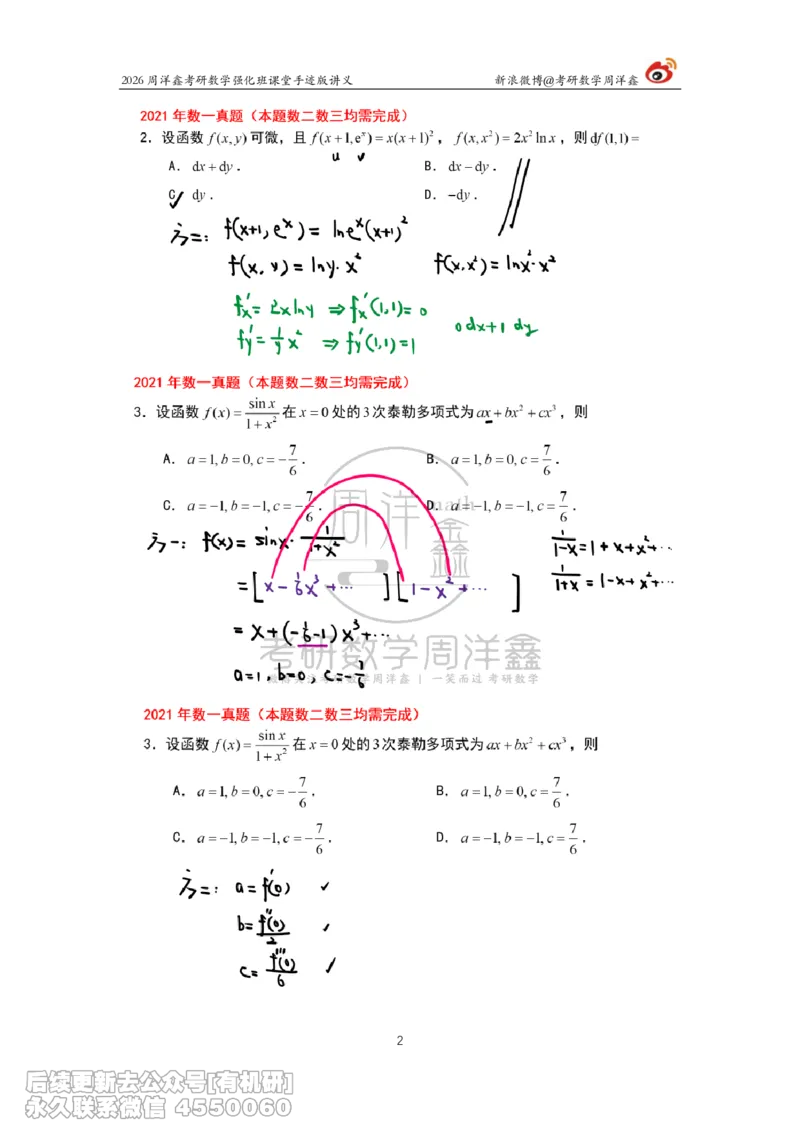 2026 周洋鑫考研数学强化班课堂手迹版讲义 新浪微博@考研数学周洋鑫
2021 年数一真题（本题数二数三均需完成）
2．设函数 f(x,y) 可微，且 f(x+1,eˣ)=x(x+1)²，f(x,x²)=2x² ln x，则 df(1,1)=
u v
A．dx+dy． B．dx−dy．
C． dy． D．−dy．
方二： f(x+1, eˣ) = ln eˣ (x+1)²
f(x, y) = ln y · x² f(x, x²) = ln x² · x²
fx' = 2x ln y ⇒ fx'(1,1) = 0
0 dx + 1 dy
fy' = 1/y x² ⇒ fy'(1,1) = 1
2021 年数一真题（本题数二数三均需完成）
3．设函数 f(x)= sin x/(1+x²) 在 x=0 处的 3 次泰勒多项式为 ax+bx²+cx³，则
A．a=1,b=0,c=−7/6． B．a=1,b=0,c=7/6．
C．a=−1,b=−1,c=−7/6． D．a=−1,b=−1,c=7/6．
周洋鑫 math
方一： f(x) = sin x · 1/(1+x²) 1/(1−x) = 1+x+x²+…
= [x − 1/6 x³ + …][1 − x² + …] 1/(1+x) = 1−x+x²+…
= x + (−1/6 −1) x³ + …
考研数学周洋鑫
a=1, b=0, c=−7/6
考研数学周洋鑫 | 一笑而过 考研数学
2021 年数一真题（本题数二数三均需完成）
3．设函数 f(x)= sin x/(1+x²) 在 x=0 处的 3 次泰勒多项式为 ax+bx²+cx³，则
A．a=1,b=0,c=−7/6． B．a=1,b=0,c=7/6．
C．a=−1,b=−1,c=−7/6． D．a=−1,b=−1,c=7/6．
方二： a = f'(0) ✓
b = f''(0)/2 ✓
c = f'''(0)/6 ✓
2
后续更新去公众号[有机研]
永久联系微信 4550060